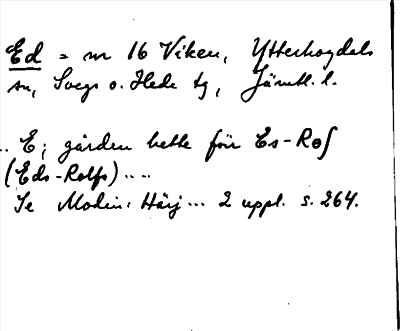 Ed = nr 16 Viken, Ytterhogdals
sn, Svegs o. Hede tg, Jämtl. l.
.. E; gården hette för Es-Rol
(Eds-Rolfs) ....
Se Modin: Härj... 2 uppl. s. 264.